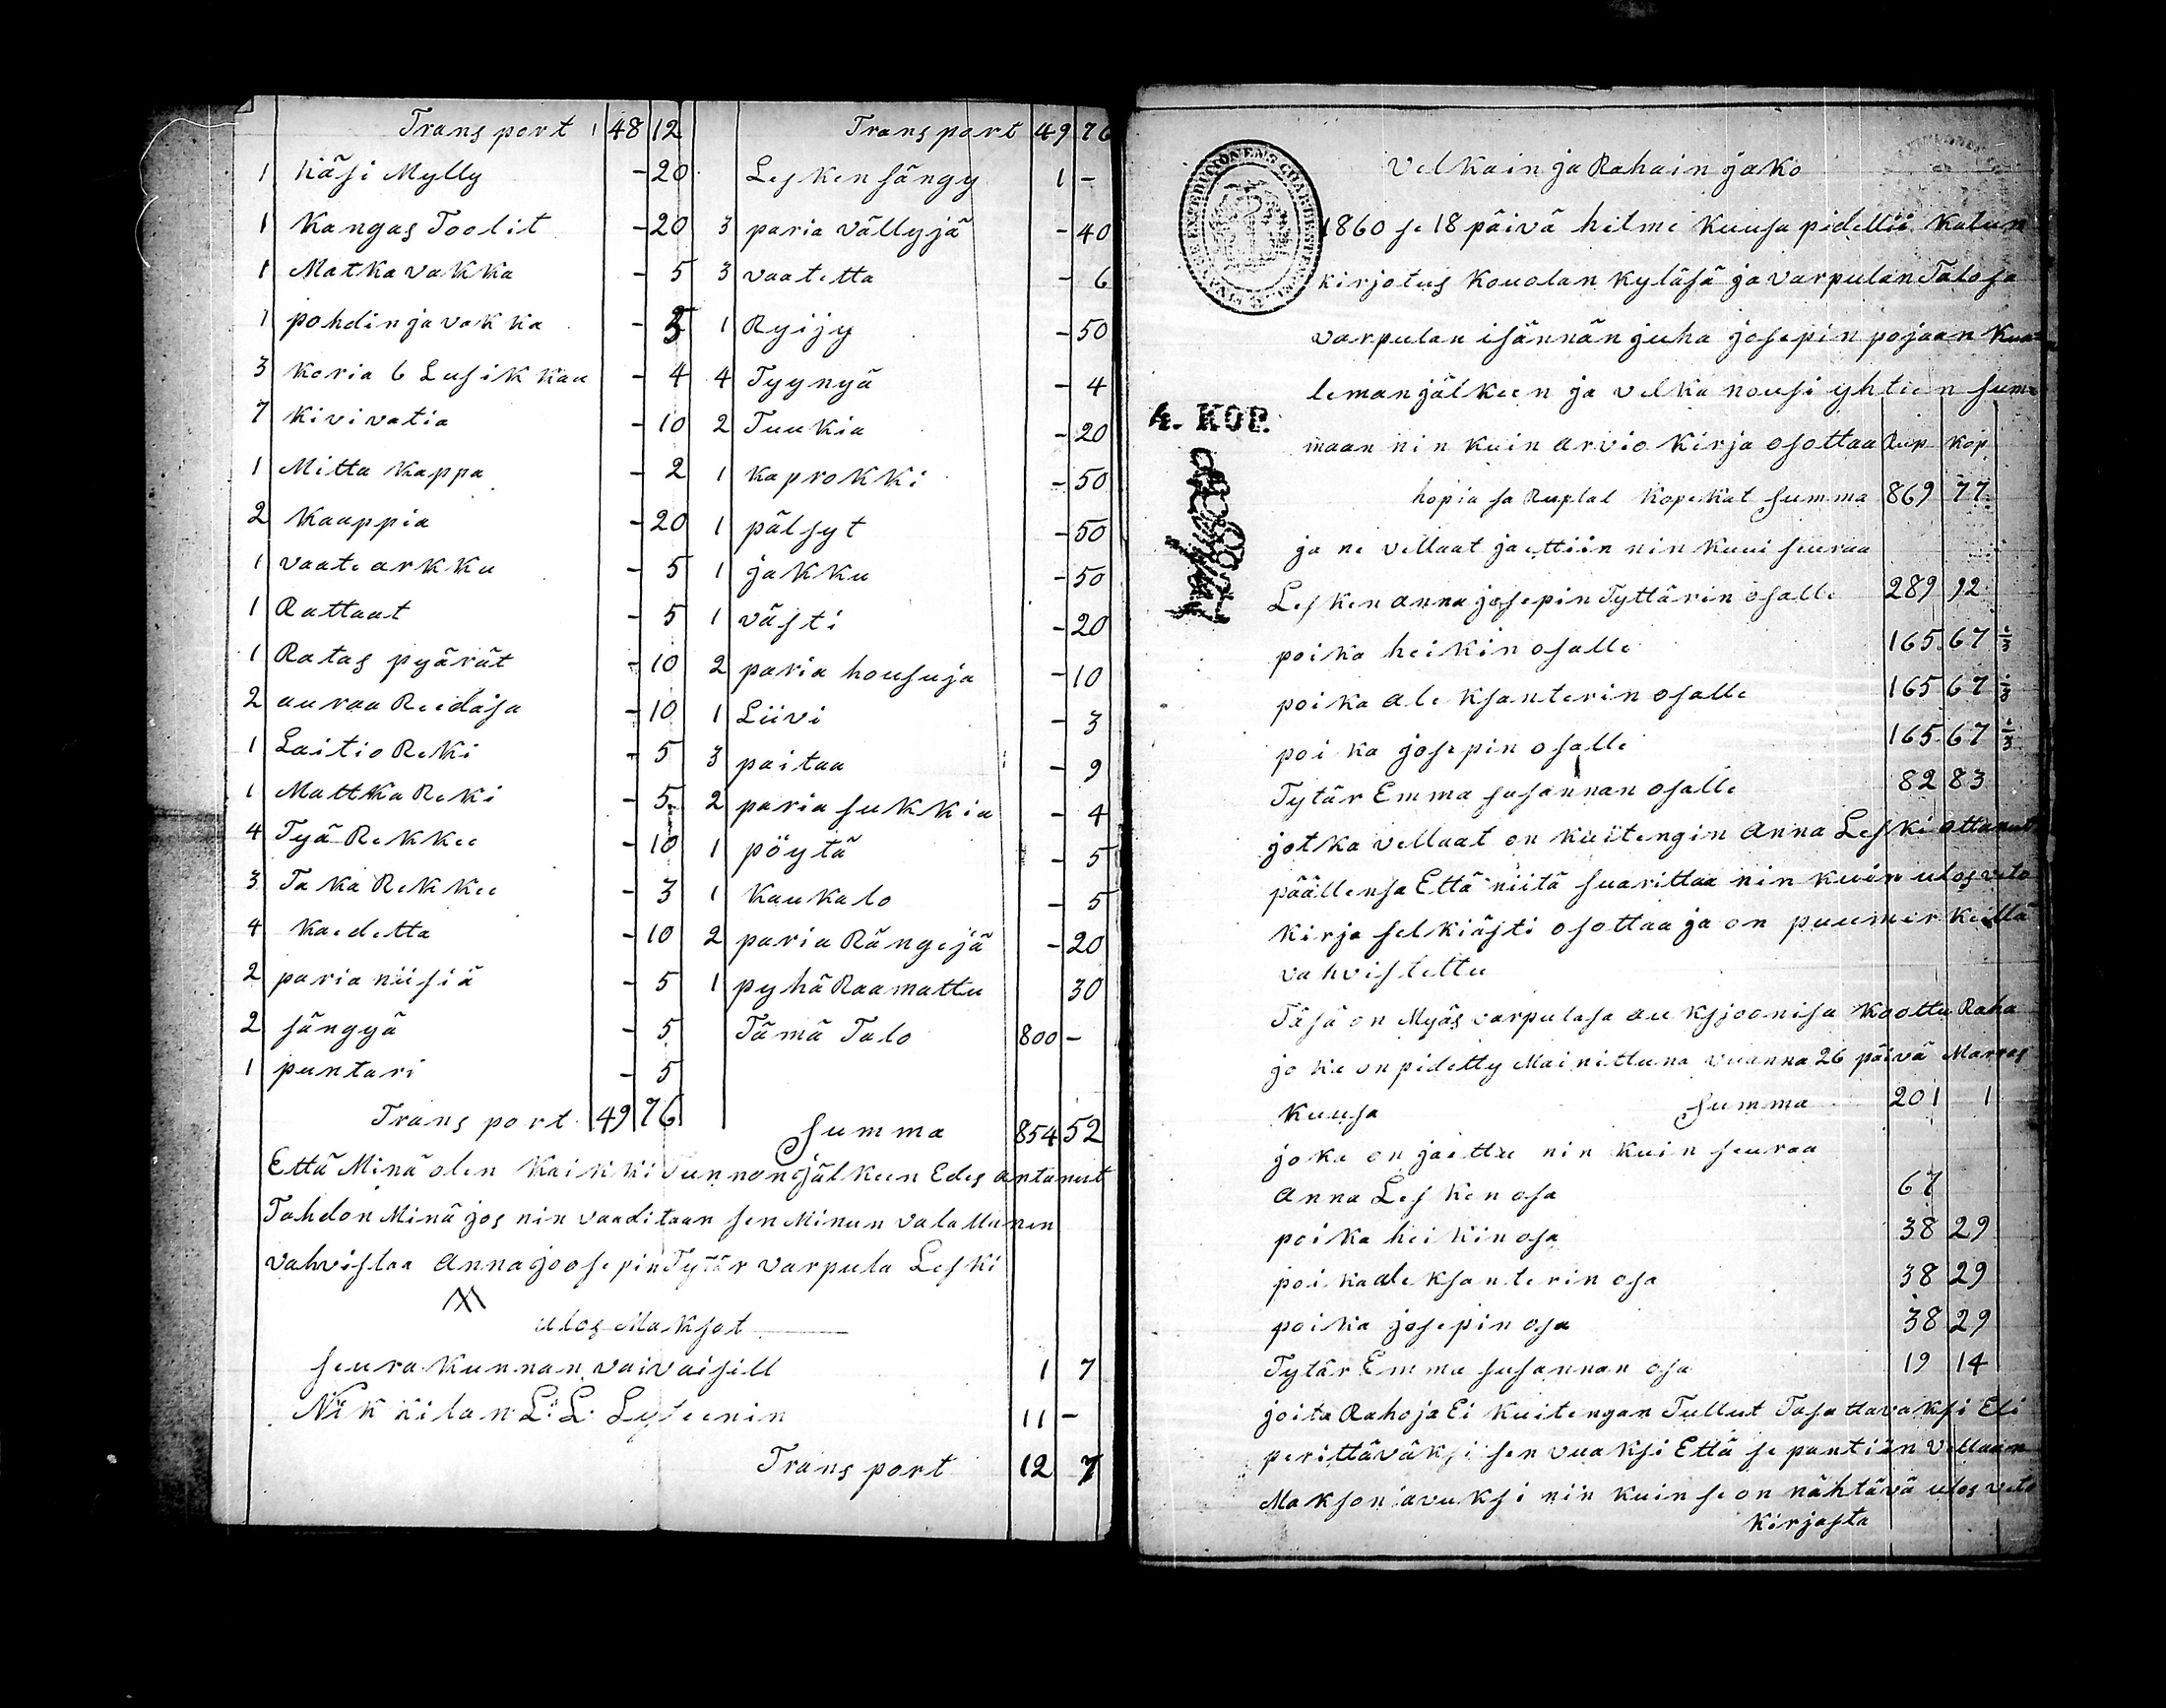 Transport 48 12
1 Käsi Mylly - 20
1 Kangas Toolit - 20
1 Matka vakka - 5
1 pohdin ja vakka - 5
3 koria 6 Lusikkaa - 4
7 kivivatia - 10
1 Mitta kappa - 2
2 kaappia - 20
1 vaate arkku - 5
1 Rattaat - 5
1 Ratas pyärät - 10
2 auraa Reidäsä - 10
1 Laitio Reki - 5
1 Mattka Reki - 5
4 Tyä Rekkee - 10
3 Taka Rekkee - 3
4 kaedetta - 10
2 paria niisiä - 5
2 sängyä - 5
1 puntari - 5
Transport 49 76
Transport 49 76
Lesken sängy 1 -
3 paria vällyjä - 40
3 vaatetta - 6
1 Ryijy - 50
4 Tyynyä - 4
2 Tuukia - 20
1 kaprokki - 50
1 pälsyt - 50
1 jakku - 50
1 västi - 20
2 paria housuja - 10
1 Liivi - 3
3 paitaa - 9
2 paria sukkia - 4
1 pöytä - 5
1 kaukalo - 5
2 paria Rängejä - 20
1 pyhä Raamattu 30
Tämä Talo 800 -
Summa 854 52
Että Minä olen kaikki Tunnoni jälkeen Edes antanut
Tahdon Minä jos nin vaaditaan sen Minun valallanen
vahvistaa Anna Joosepin Tytär varpula Leski
ulos Maksot
seurakunnan vaivaisill 1 7
Nikkilan L: L: Lyseenin 11 -
Transport 12 7
Velkain ja Rahain jako
1860 se 18 päivä helme kuusa pidettii kalun
kirjotus kouolan kyläsä ja varpulan Talosa
varpulan isännän juha josepin pojaan kuo
leman jälkeen ja velka nousi yhteen sum
4. KOP.
maan nin kuin arvio kirja osottaa Rup kop
hopia sa Ruplal kopekat summa 869 77
ja ne vellaat jaettiin nin kuui seuraa
Lesken anna josepin Tyttärin osalle 289 92
poika heikin osalle 165 67 1/3
poika aleksanterin osalle 165 67 1/3
poika josepin osalle 165 67 1/3
Tytär Emma susannan osalle 82 83
jotka vellaat on kuitengin Anna Leski ottanut
päällensa Että niitä suarittaa nin kuin ulosveto
kirja selkiästi osottaa ja on puumerkeillä
vahvistettu
Täsä on Myäs varpulasa auksjoonisa koottu Raha
joka on pidetty Mainittuna vuanna 26 päivä Marras
kuusa summa 201 1
joka on jaettu nin kuin seuraa
Anna Lesken osa 67
poika heikin osa 38 29
poika aleksanterin osa 38 29
poika josepin osa 38 29
Tytär Emma susannan osa 19 14
joita Rahoja Ei kuitengan Tullut Tasattavaksi Eli
perittäväksi sen vuaksi Että se pantiin vellaan
Makson avuksi nin kuin se on nähtävä ulosveto
kirjasta